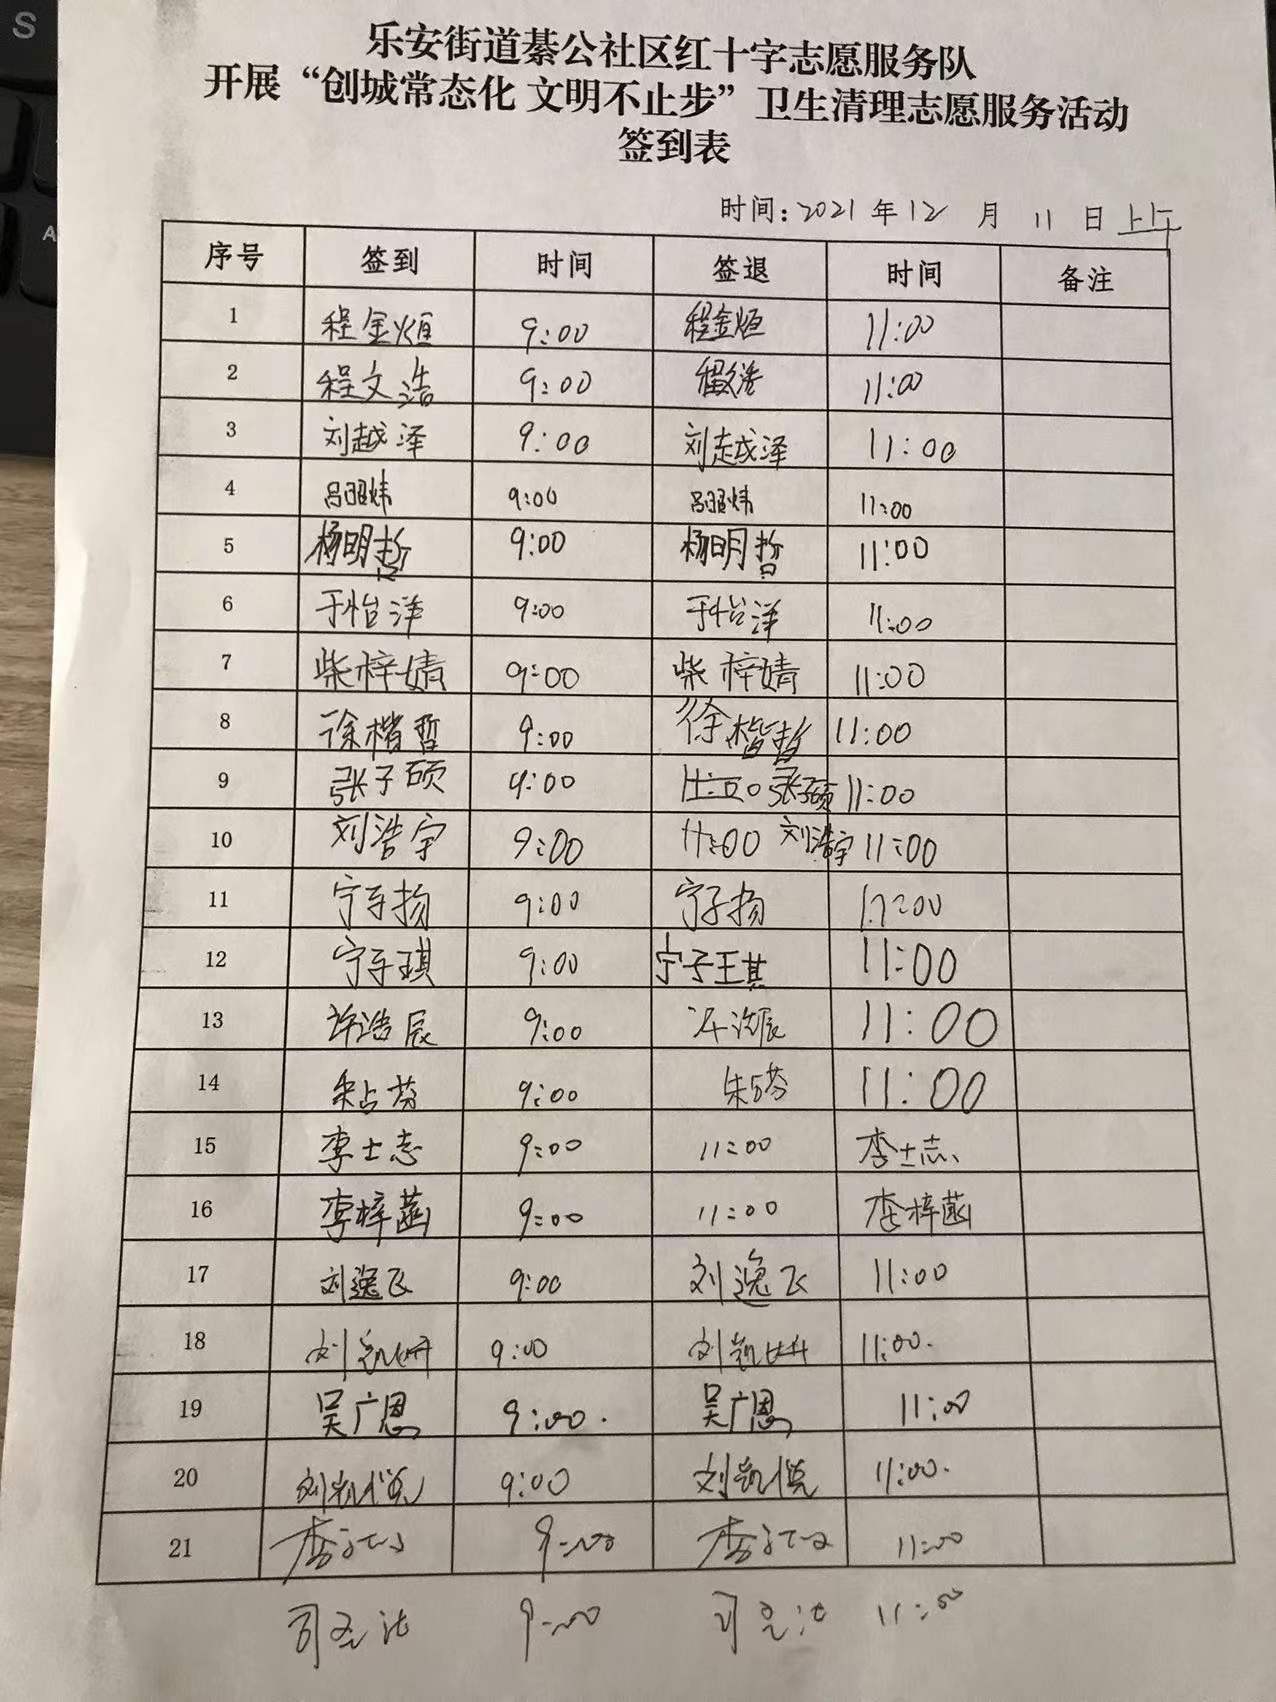 乐安街道綦公社区红十字志愿服务队
开展“创城常态化 文明不止步”卫生清理志愿服务活动
签到表
时间：2021年12月11日上午
序号 签到 时间 签退 时间 备注
1 程金烜 9:00 程金烜 11:00
2 程文浩 9:00 程文浩 11:00
3 刘越泽 9:00 刘越泽 11:00
4 吕昭炜 9:00 吕昭炜 11:00
5 杨明哲 9:00 杨明哲 11:00
6 于怡洋 9:00 于怡洋 11:00
7 柴梓婧 9:00 柴梓婧 11:00
8 徐楷哲 9:00 徐楷哲 11:00
9 张子硕 9:00 张子硕 11:00
10 刘浩宇 9:00 11:00 刘浩宇 11:00
11 宁子扬 9:00 宁子扬 11:00
12 宁子琪 9:00 宁子琪 11:00
13 许浩辰 9:00 许浩辰 11:00
14 朱占芬 9:00 朱占芬 11:00
15 李士志 9:00 11:00 李士志
16 李梓菡 9:00 11:00 李梓菡
17 刘逸飞 9:00 刘逸飞 11:00
18 刘凯妍 9:00 刘凯妍 11:00.
19 吴广恩 9:00. 吴广恩 11:00
20 刘凯悦 9:00 刘凯悦 11:00.
21 9:00 11:00
9:00 11:00